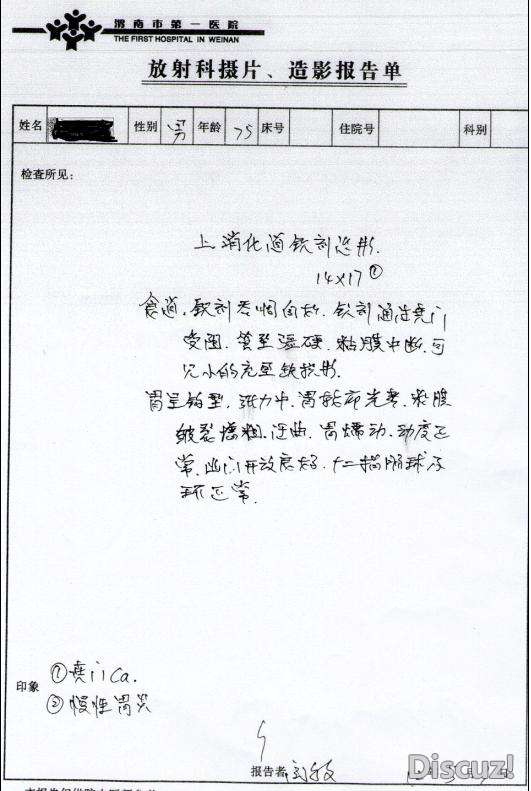 渭南市第一医院
THE FIRST HOSPITAL IN WEINAN
放射科摄片、造影报告单
姓名 性别 男 年龄 75 床号 住院号 科别
检查所见：
上消化道钡剂造影
14×17 ①
食道：钡剂吞咽自如，钡剂通过贲门
受阻，管壁僵硬，粘膜中断，可
见小的充盈缺损影。
胃呈钩型，张力中，胃轮廓光整，粘膜
皱襞增粗、迂曲，胃蠕动、动度正
常，幽门开放良好，十二指肠球及
环正常。
印象
①贲门Ca.
②慢性胃炎
报告者
Discuz!